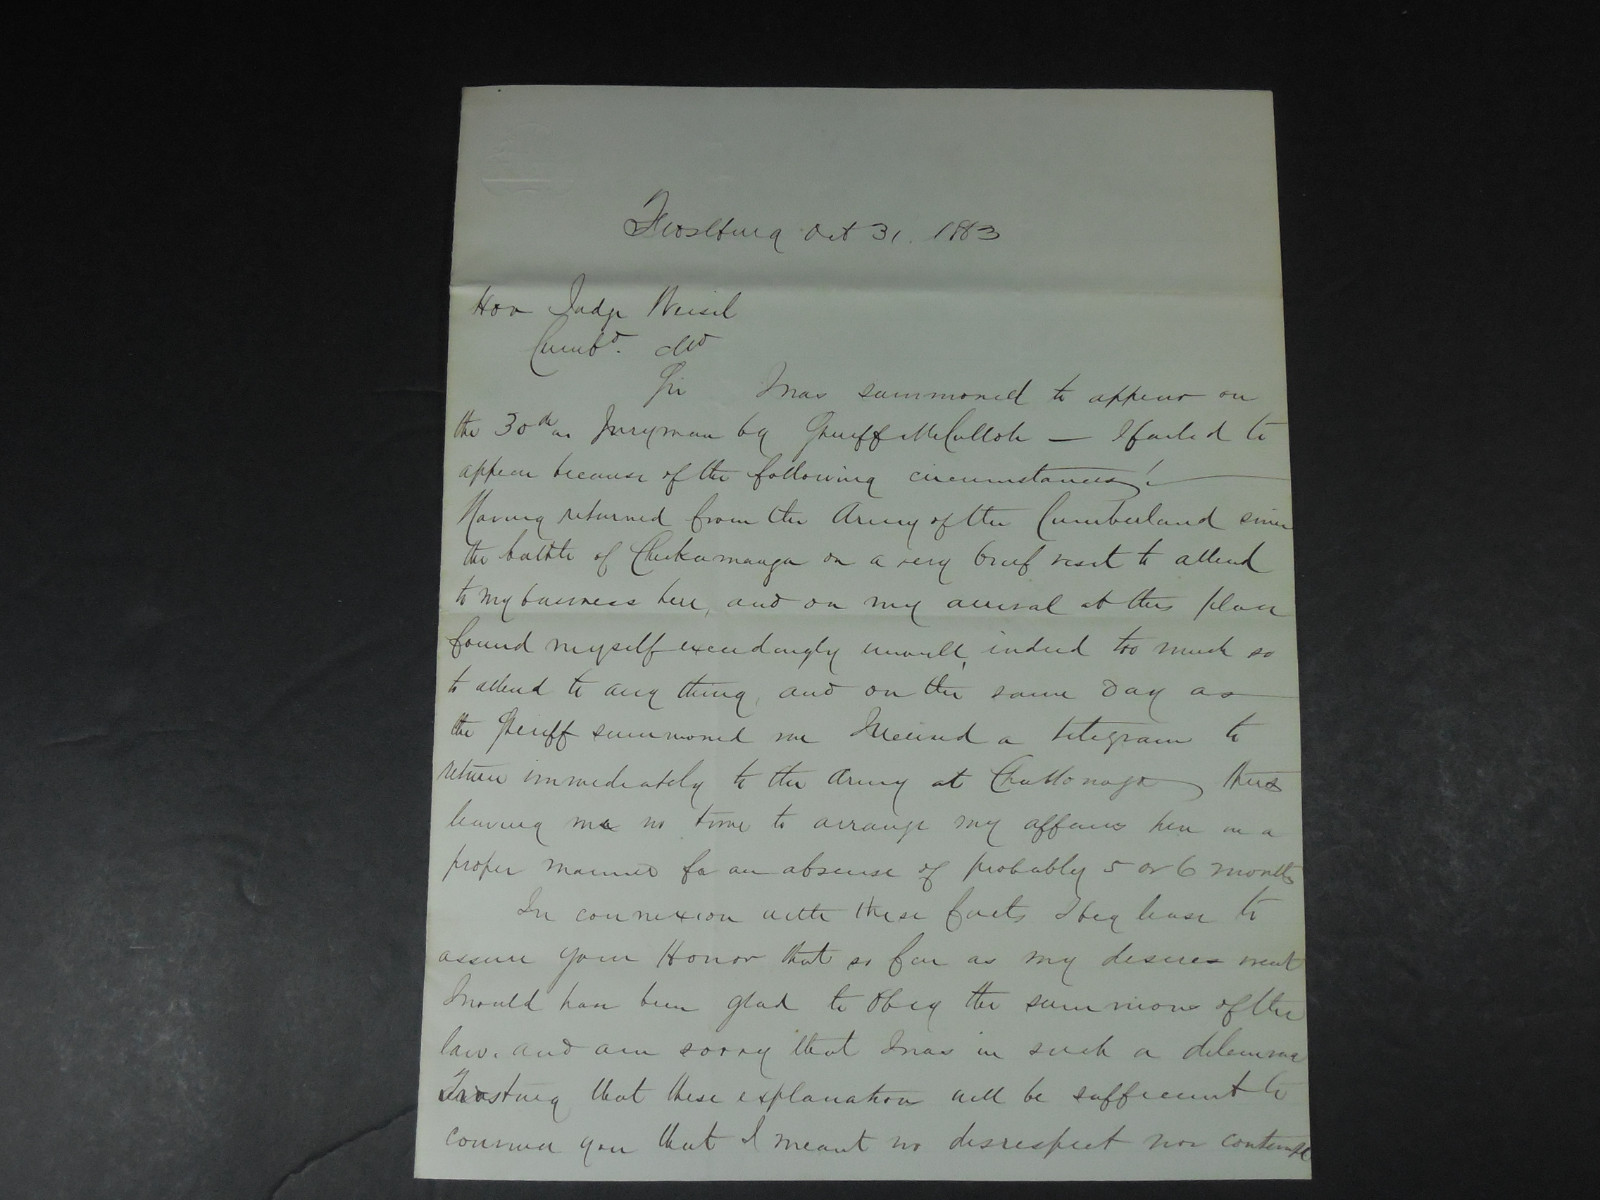 Frostburg Oct 31. 1863
Hon Judge Weisel
Cumbd. Md
Sir I was summoned to appear on
the 30th as Juryman by Sheriff McCulloh — I failed to
appear because of the following circumstances!
Having returned from the Army of the Cumberland since
the battle of Chickamauga on a very brief visit to attend
to my business here, and on my arrival at this place
found myself exceedingly unwell, indeed too much so
to attend to any thing, and on the same day as
the Sheriff summoned me I received a telegram to
return immediately to the Army at Chattonaga, thus
leaving me no time to arrange my affairs here in a
proper manner for an absense of probably 5 or 6 months
In connexion with these facts I beg leave to
assure your Honor that so far as my desires went
I would have been glad to obey the summons of the
law. and am sorry that I was in such a dilemma
Trusting that these explanation will be sufficient to
convince you that I meant no disrespect nor contempt